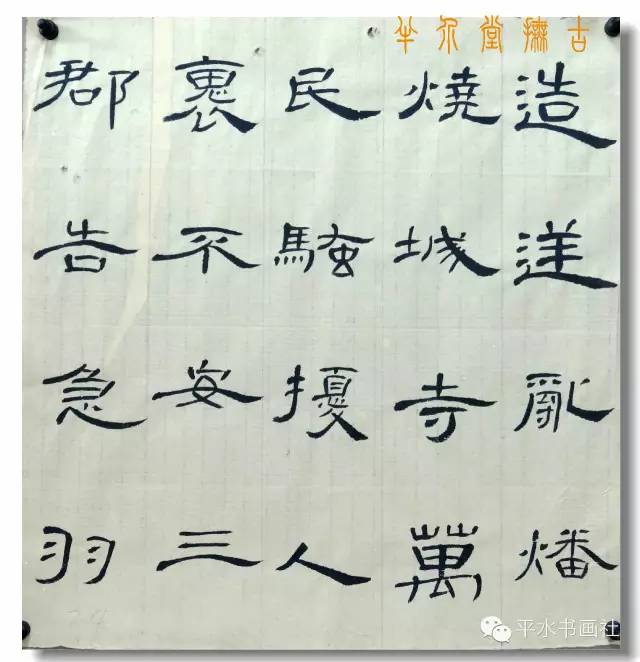 半堂撫古
造逆亂燔
燒城寺萬
民騷擾人
褱不安三
郡告急羽
平水书画社